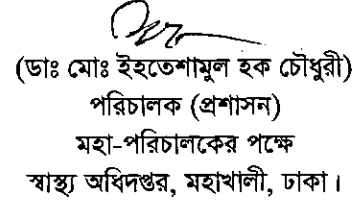 (ডাঃ মোঃ ইহতেশামুল হক চৌধুরী)
পরিচালক (প্রশাসন)
মহা-পরিচালকের পক্ষে
স্বাস্থ্য অধিদপ্তর, মহাখালী, ঢাকা।